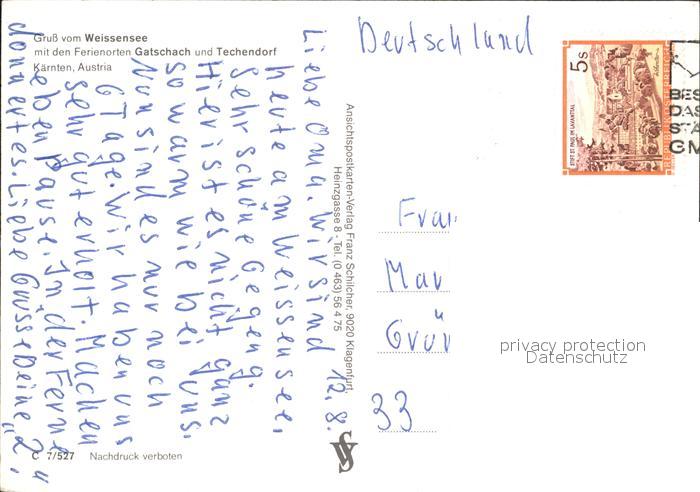 Gruß vom Weissensee
mit den Ferienorten Gatschach und Techendorf
Kärnten, Austria
12.8.
Liebe Oma. Wir sind
heute am Weissensee.
Sehr schöne Gegeng.
Hier ist es nicht ganz
so warm wie bei uns.
Nun sind es nur noch
6 Tage. Wir haben uns
sehr gut erholt. Machen
eben Pause. In der Ferne
donnert es. Liebe Grüsse Deine
"2"
C 7/527 Nachdruck verboten
Ansichtspostkarten-Verlag Franz Schilcher, 9020 Klagenfurt,
Heinzgasse 8 · Tel. (0 463) 56 4 75
Deutschland
5 S
STIFT ST. PAUL IM LAVANTTAL
REPUBLIK ÖSTERREICH
BES
DAS
STA
GM
Frau
Mar
Grün
33
privacy protection
Datenschutz